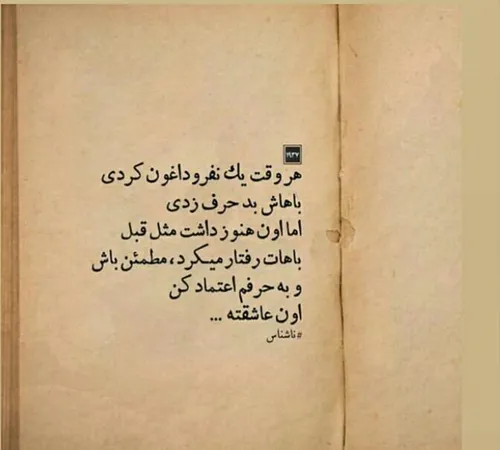 ۱۹۳۷
هر وقت یك نفرو داغون کردی
باهاش بد حرف زدی
اما اون هنوز داشت مثل قبل
باهات رفتار میکرد، مطمئن باش
و به حرفم اعتماد کن
اون عاشقته ...
#ناشناس